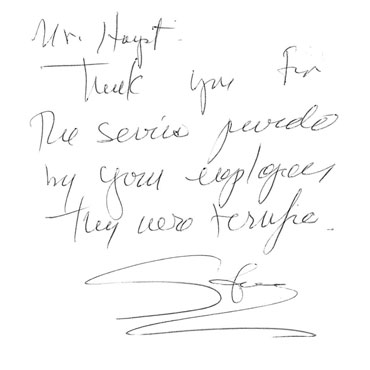 Mr. Hayst.
Thank you for
The service provided
by your employees
They were terrific.